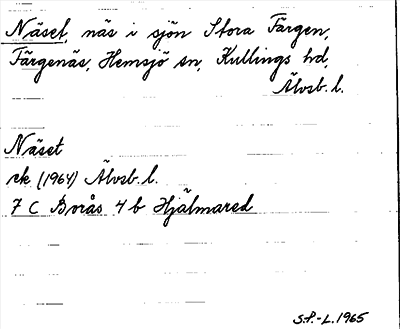 Näset, näs i sjön Stora Färgen,
Färgenäs, Hemsjö sn, Kullings hd,
Älvsb. l.
Näset
ek (1964) Älvsb. l.
7 C Borås 4 b Hjälmared
S.P.-L. 1965